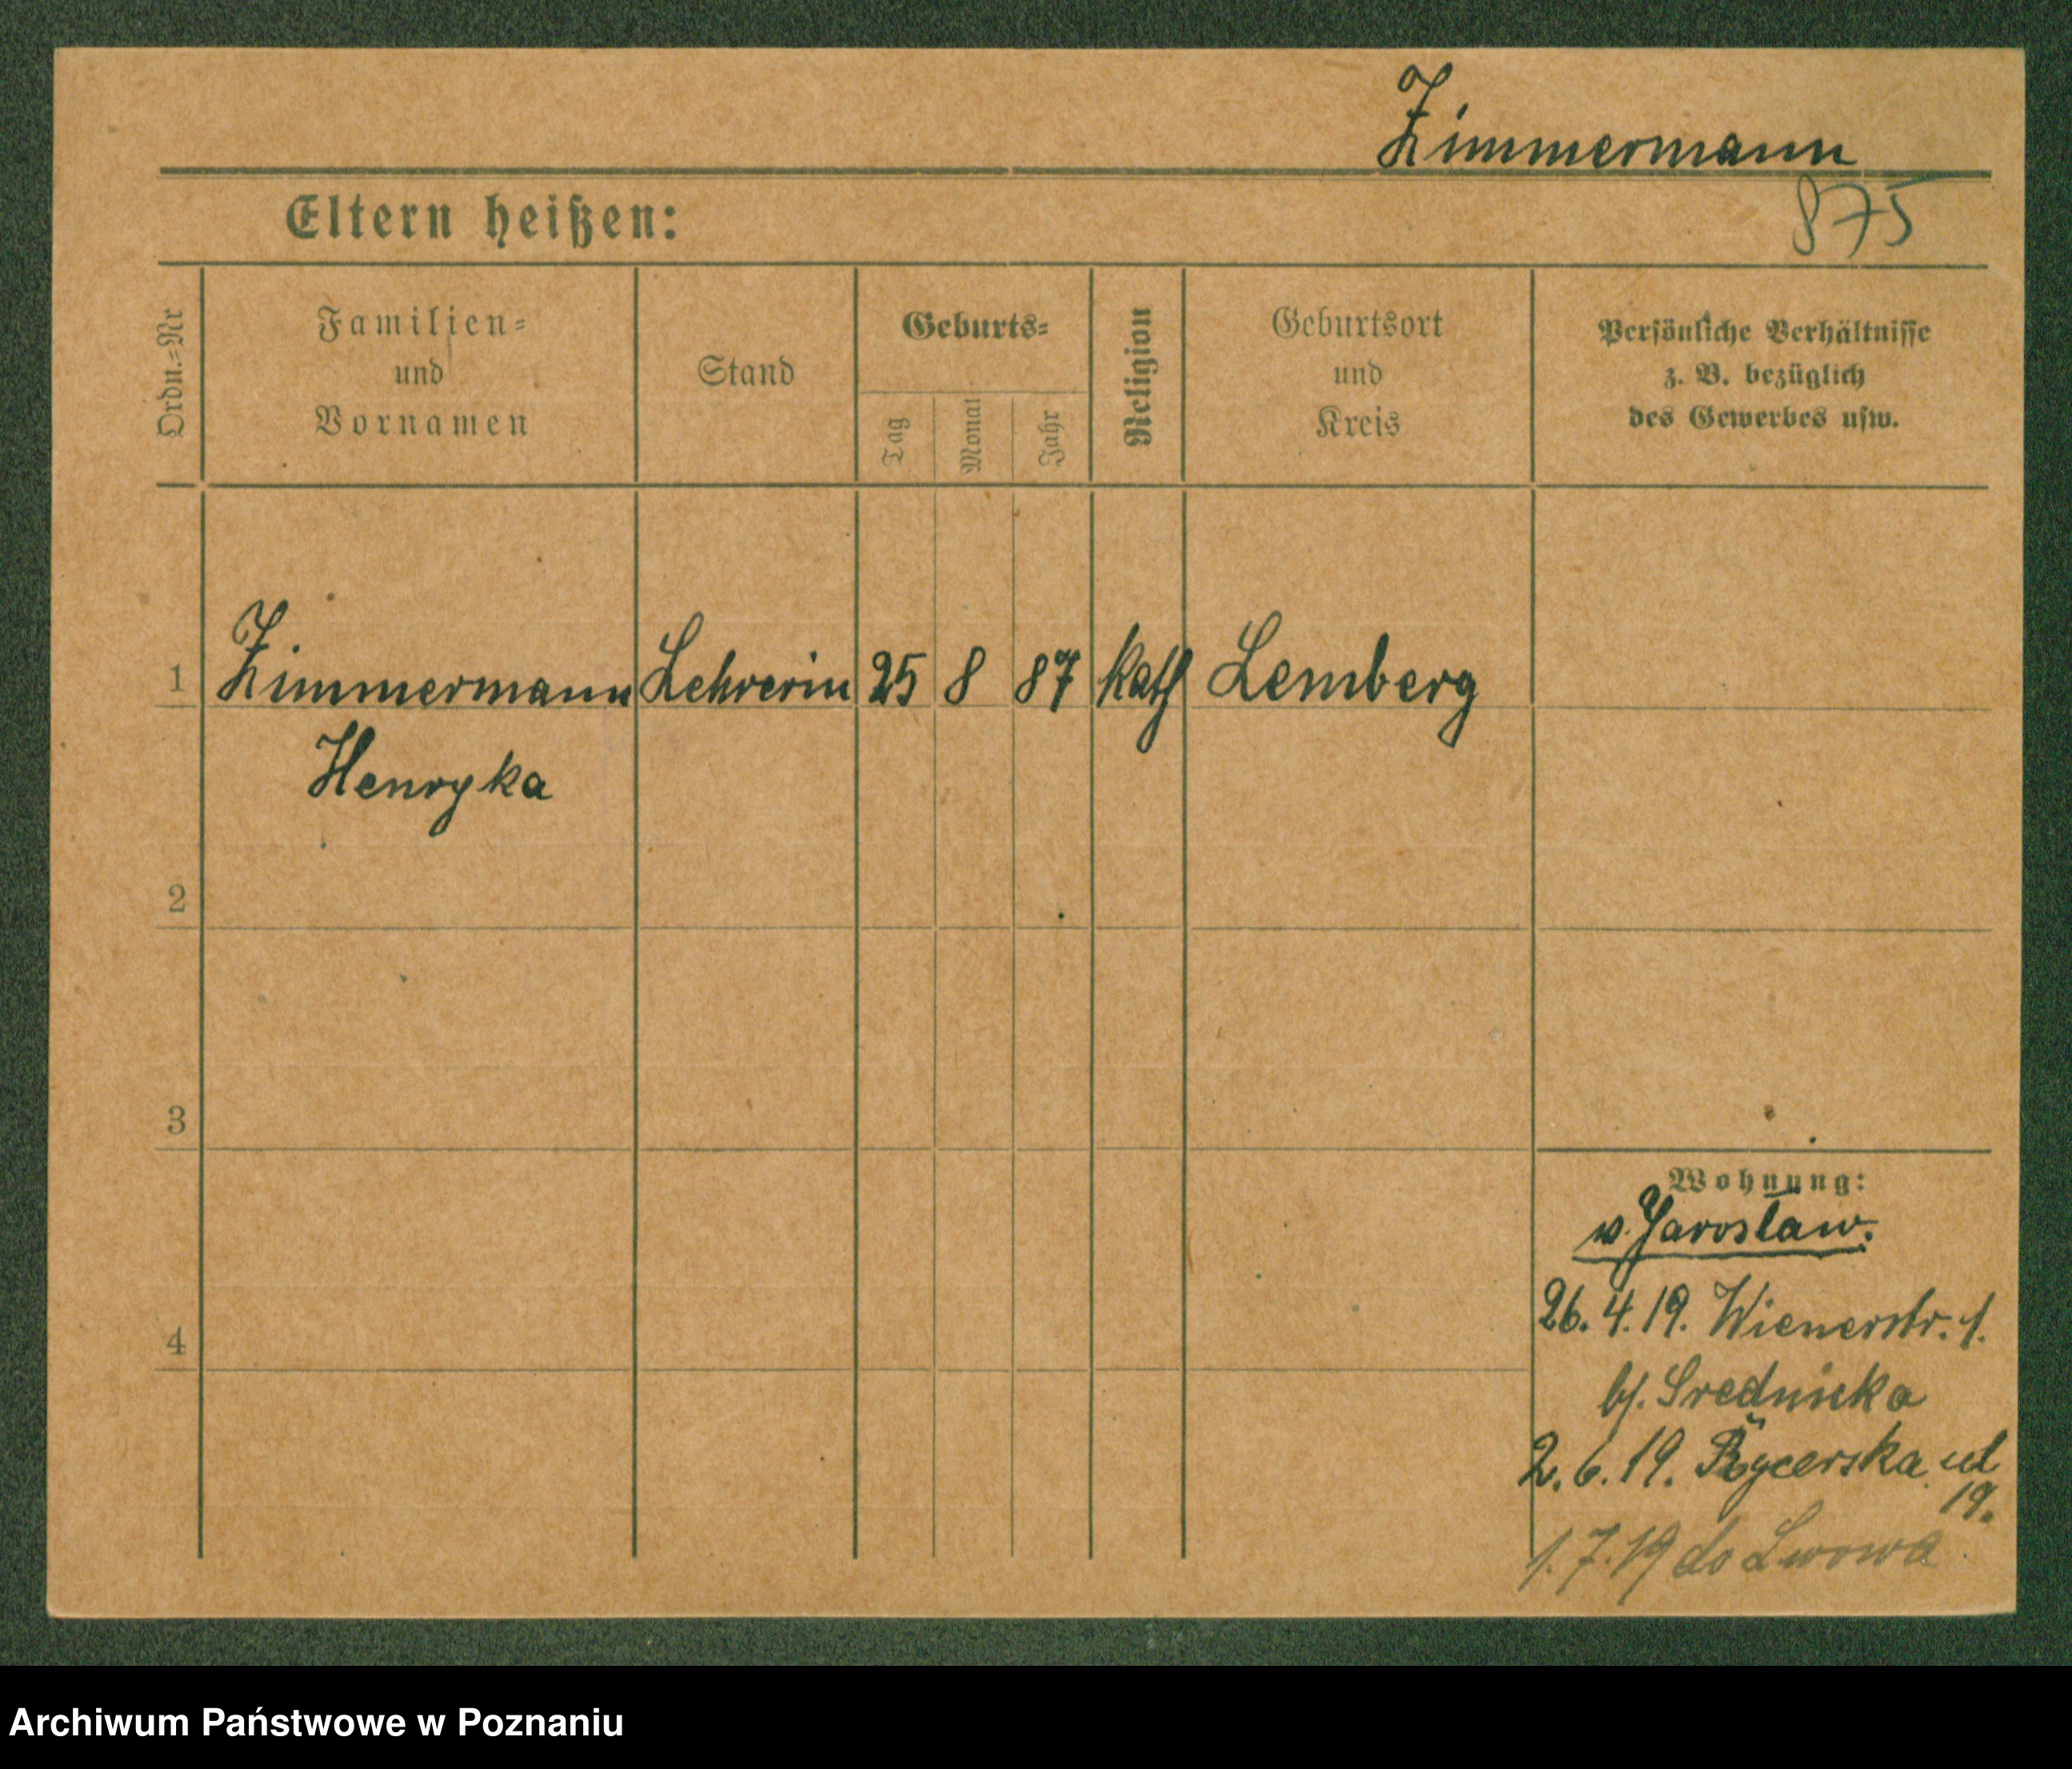 Zimmermann
Eltern heißen:
875
Ordn.=Nr
Familien=
und
Vornamen
Stand
Geburts=
Tag
Monat
Jahr
Religion
Geburtsort
und
Kreis
Persönliche Verhältnisse
z. B. bezüglich
des Gewerbes usw.
1 Zimmermann Lehrerin 25 8 87 Kath Lemberg
Henryka
2
3
Wohnung:
v. Jaroslaw.
26. 4. 19. Wienerstr. 1.
b/. Srednicka
4
2. 6. 19. Rycerska ul
19.
1. 7. 19 do Lwowa
Archiwum Państwowe w Poznaniu